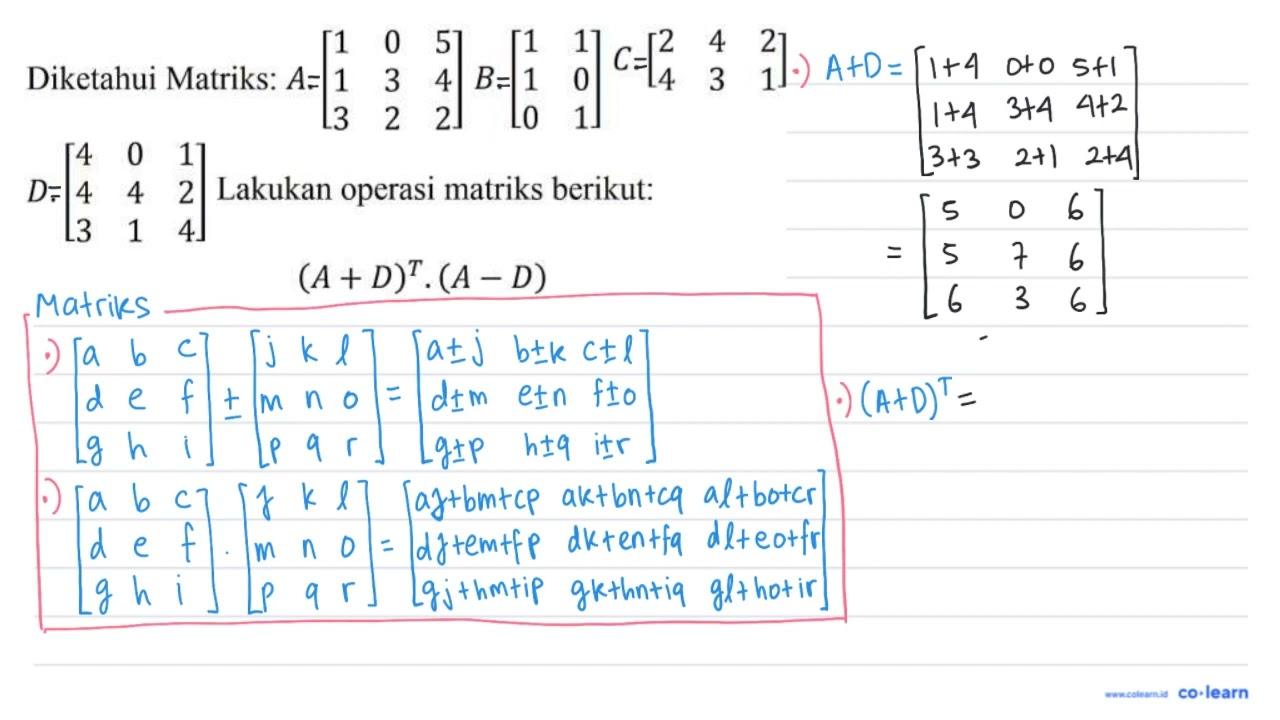 Diketahui Matriks: A=[1 0 5; 1 3 4; 3 2 2] B=[1 1; 1 0; 0 1] C=[2 4 2; 4 3 1]
D=[4 0 1; 4 4 2; 3 1 4] Lakukan operasi matriks berikut:
(A + D)^T . (A − D)
Matriks
•) [a b c; d e f; g h i] ± [j k l; m n o; p q r] = [a±j b±k c±l; d±m e±n f±o; g±p h±q i±r]
•) [a b c; d e f; g h i] . [j k l; m n o; p q r] = [aj+bm+cp ak+bn+cq al+bo+cr; dj+em+fp dk+en+fq dl+eo+fr; gj+hm+ip gk+hn+iq gl+ho+ir]
•) A+D = [1+4 0+0 5+1; 1+4 3+4 4+2; 3+3 2+1 2+4]
= [5 0 6; 5 7 6; 6 3 6]
•) (A+D)^T =
www.colearn.id co·learn